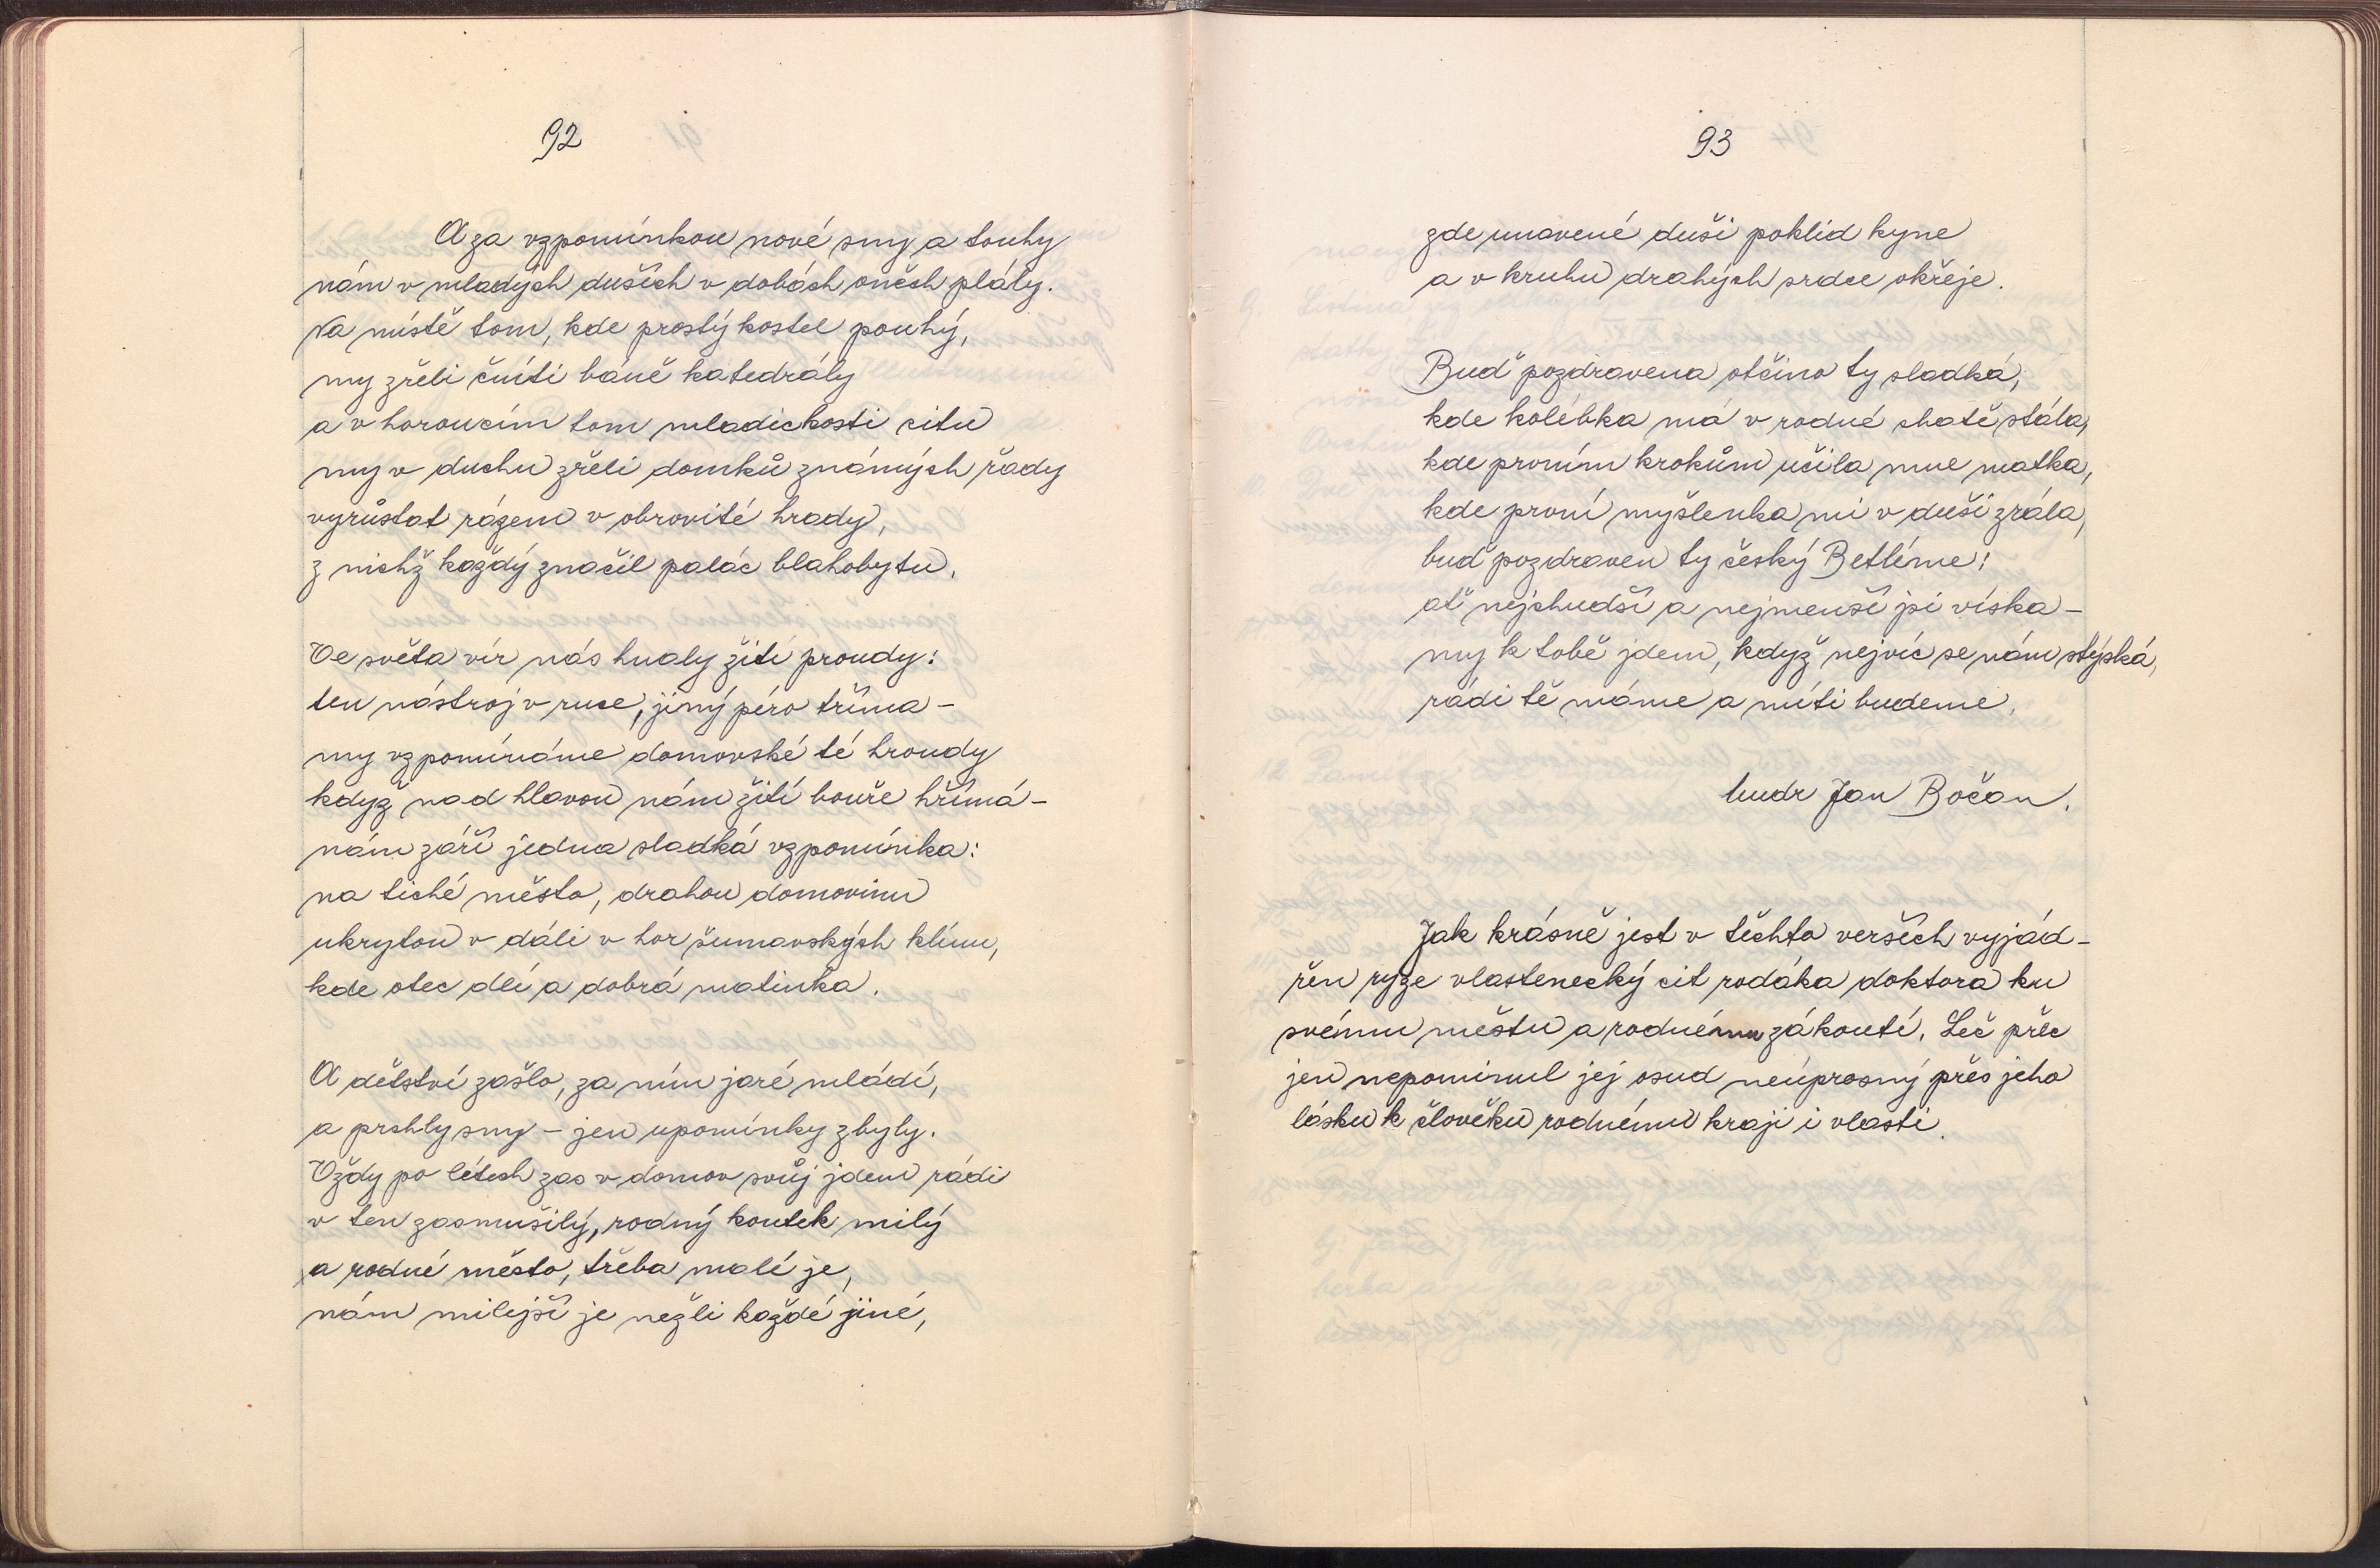 92
A za vzpomínkou nové sny a touhy
nám v mladých duších v dobách oněch plály.
Na místě tom, kde prostý kostel pouhý,
my zřeli čníti báně katedrály
a v horoucím tom mladickosti citu
my v duchu zřeli domků známých řady
vyrůstat rázem v obrovité hrady,
z nichž každý značil palác blahobytu.
Ve světa vír nás hnaly žití proudy:
ten nástroj v ruce, jiný péro tříma –
my vzpomínáme domovské té hroudy
když nad hlavou nám žití bouře hřímá –
nám září jedna sladká vzpomínka:
na tiché město, drahou domovinu
ukrytou v dáli v hor šumavských klínu,
kde otec dlí a dobrá matinka.
A dětství zašlo, za ním jaré mládí,
a prchly sny – jen upomínky zbyly.
Vždy po létech zas v domov svůj jdem rádi
v ten zasmušilý, rodný koutek milý
a rodné město, třeba malé je,
nám milejší je nežli každé jiné,
93
zde unavené duši poklid kyne
a v kruhu drahých srdce okřeje.
Buď pozdravena otčino ty sladká,
kde kolébka má v rodné chatě stála,
kde prvním krokům učila mne matka,
kde první myšlenka mi v duši zrála,
buď pozdraven ty český Betléme!
ať nejchudší a nejmenší jsi víska –
my k tobě jdem, když nejvíc se nám stýská,
rádi tě máme a míti budeme.
Mudr Jan Bočan.
Jak krásně jest v těchto verších vyjád-
řen ryze vlastenecký cit rodáka doktora ku
svému městu a rodnému zákoutí. Leč přec
jen nepominul jej osud neúprosný přes jeho
lásku k člověku rodnému kraji i vlasti.